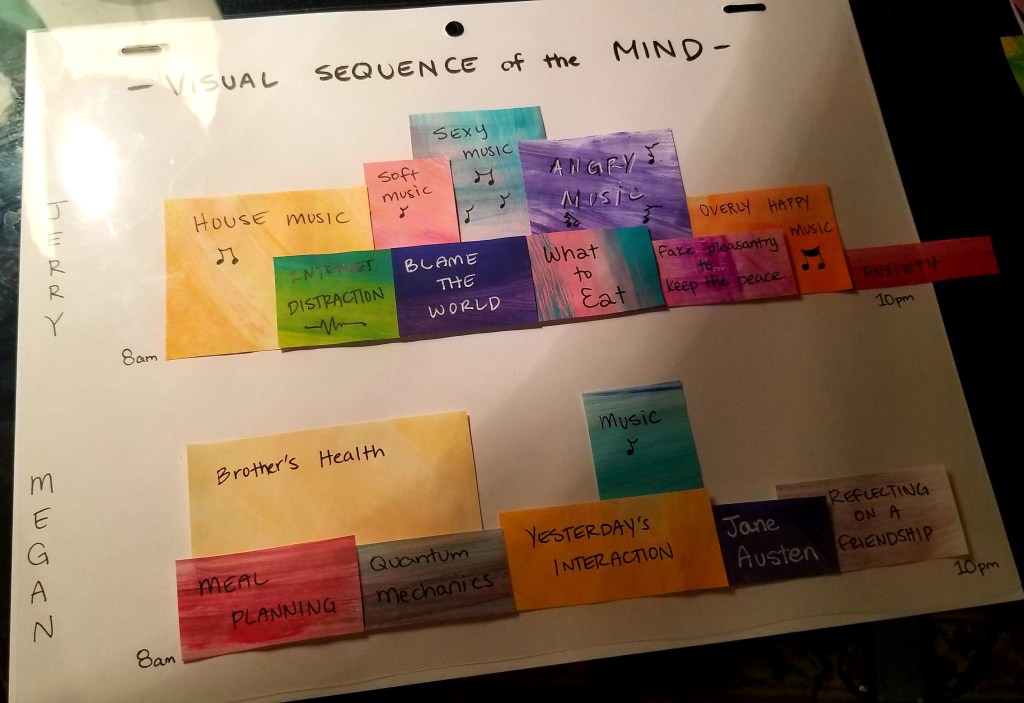 - VISUAL SEQUENCE of the MIND -
JERRY
HOUSE MUSIC
Soft
music
SEXY
MUSIC
ANGRY
MUSIC
OVERLY HAPPY
MUSIC
INTERNET
DISTRACTION
BLAME
THE
WORLD
What
to
Eat
Fake pleasantry
to
keep the peace
ANXIETY
8am
10pm
MEGAN
Brother's Health
MUSIC
MEAL
PLANNING
Quantum
Mechanics
YESTERDAY'S
INTERACTION
Jane
Austen
REFLECTING
ON A
FRIENDSHIP
8am
10pm